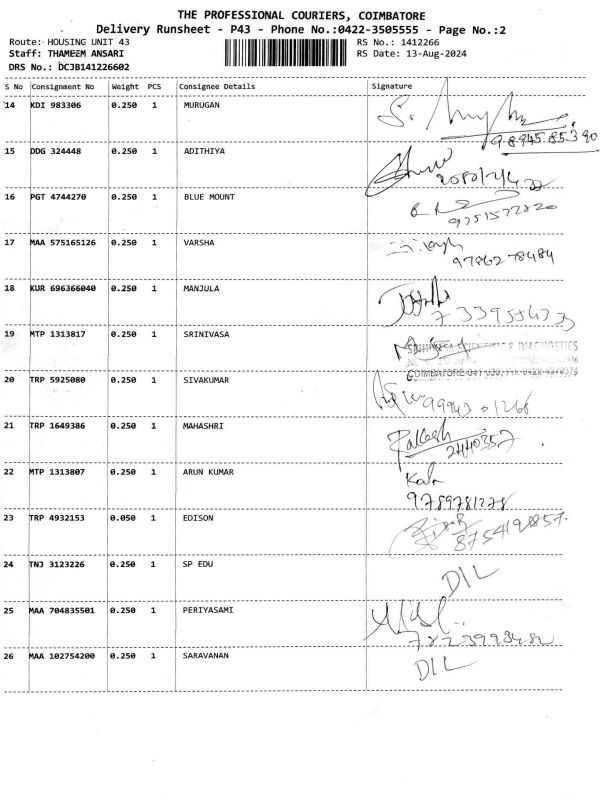 THE PROFESSIONAL COURIERS, COIMBATORE
Delivery Runsheet - P43 - Phone No.:0422-3505555 - Page No.:2
Route: HOUSING UNIT 43 RS No.: 1412266
Staff: THAMEEM ANSARI RS Date: 13-Aug-2024
DRS No.: DCJB141226602
S No Consignment No Weight PCS Consignee Details Signature
14 KDI 983306 0.250 1 MURUGAN
9894585390
15 DDG 324448 0.250 1 ADITHIYA
16 PGT 4744270 0.250 1 BLUE MOUNT
9751577820
17 MAA 575165126 0.250 1 VARSHA
9786278484
18 KUR 696366040 0.250 1 MANJULA
19 MTP 1313817 0.250 1 SRINIVASA
& DIAGNOSTICS
20 TRP 5925080 0.250 1 SIVAKUMAR
21 TRP 1649386 0.250 1 MAHASHRI
Rakesh
2440357
22 MTP 1313807 0.250 1 ARUN KUMAR
Kala
9789781278
23 TRP 4932153 0.050 1 EDISON
8754198857
24 TNJ 3123226 0.250 1 SP EDU
DIL
25 MAA 704835501 0.250 1 PERIYASAMI
26 MAA 102754200 0.250 1 SARAVANAN
DIL